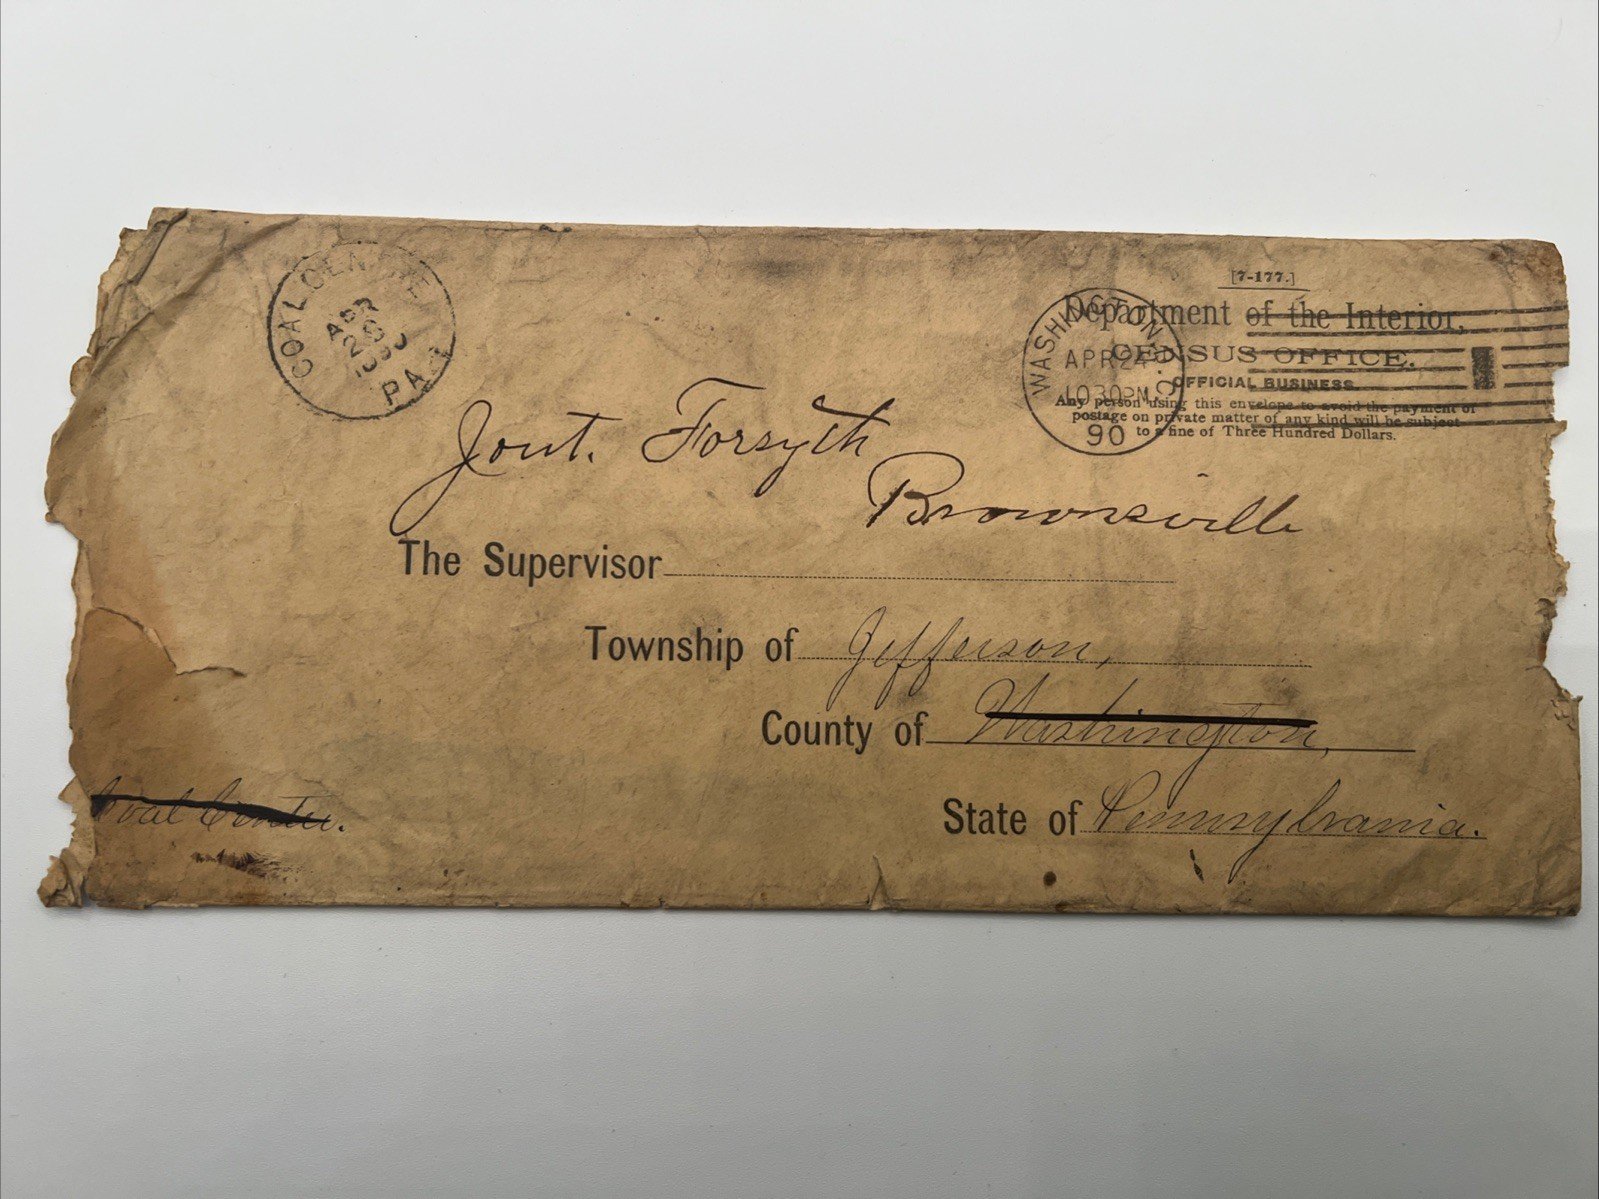 [7-177.]
Department of the Interior,
CENSUS OFFICE.
OFFICIAL BUSINESS.
Any person using this envelope to avoid the payment of
postage on private matter of any kind will be subject
to a fine of Three Hundred Dollars.
WASHINGTON, D.C.
APR 24
1030PM
90
COAL CENTRE
APR
1890
PA.
Forsyth
Brownsville
The Supervisor
Township of Jefferson,
County of Washington,
State of Pennsylvania.
Coal Centre.